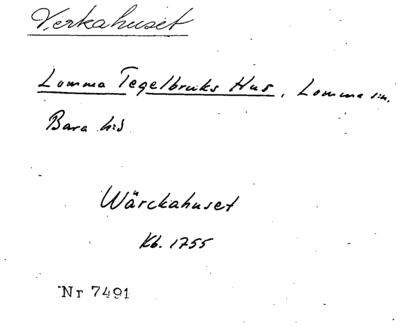 Verkahuset
Lomma Tegelbruks Hus, Lomma sn.
Bara hd
Wärckahuset
Kb. 1755
Nr 7491